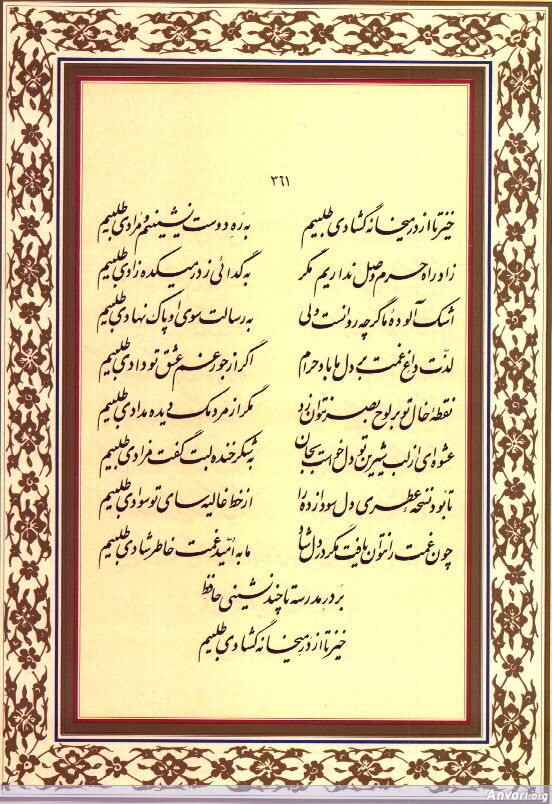 ٣٦١
خیز تا از در میخانه گشادی طلبیم به ره دوست نشینیم و مرادی طلبیم
زاد راه حرم وصل نداریم مگر به گدائی ز در میکده زادی طلبیم
اشک آلودهٔ ما گرچه روانست ولی به رسالت سوی او پاک نهادی طلبیم
لذّت داغ غمت بر دل ما باد حرام اگر از جور غم عشق تو دادی طلبیم
نقطه خال تو بر لوح بصر نتوان زد مگر از مردمک دیده مدادی طلبیم
عشوه‌ای از لب شیرین تو دل خواست بجان به شکر خنده لبت گفت مزادی طلبیم
تا بود نسخه عطری دل سودازده را از خط غالیه سای تو سوادی طلبیم
چون غمت را نتوان یافت مگر در دل شاد ما به امّید غمت خاطر شادی طلبیم
بر در مدرسه تا چند نشینی حافظ
خیز تا از در میخانه گشادی طلبیم
AnVari.org